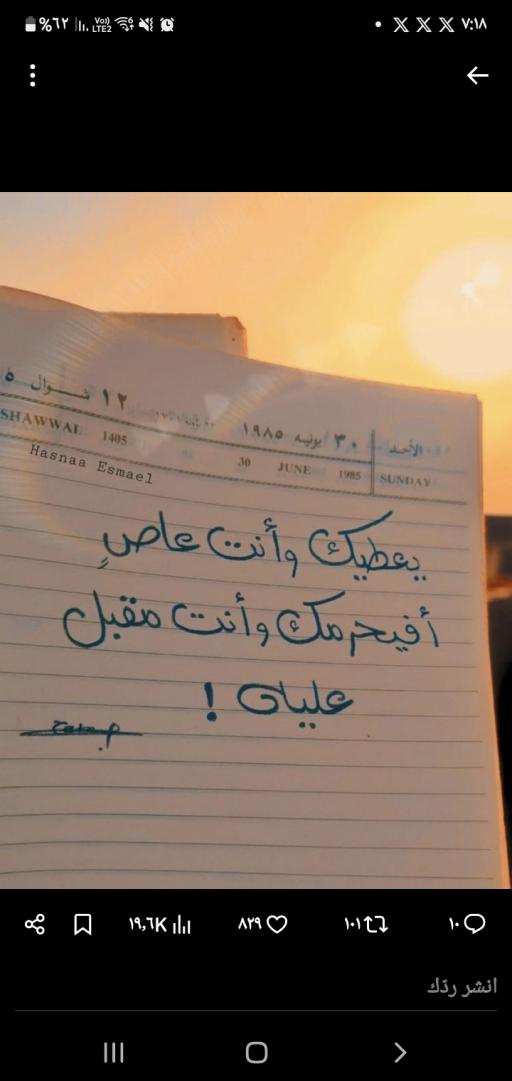 ٧:١٨ X X X •
%٦٢ Vo)) LTE2 6
١٢ شوال
٣٠ يونيه ١٩٨٥
الأحد
SHAWWAL 1405
30 JUNE 1985
SUNDAY
Hasnaa Esmael
يعطيك وأنت عاصٍ
أفيحرمك وأنت مقبل
عليه !
١٠ ١٠١ ٨٢٩ ١٩,٦K
انشر ردّك